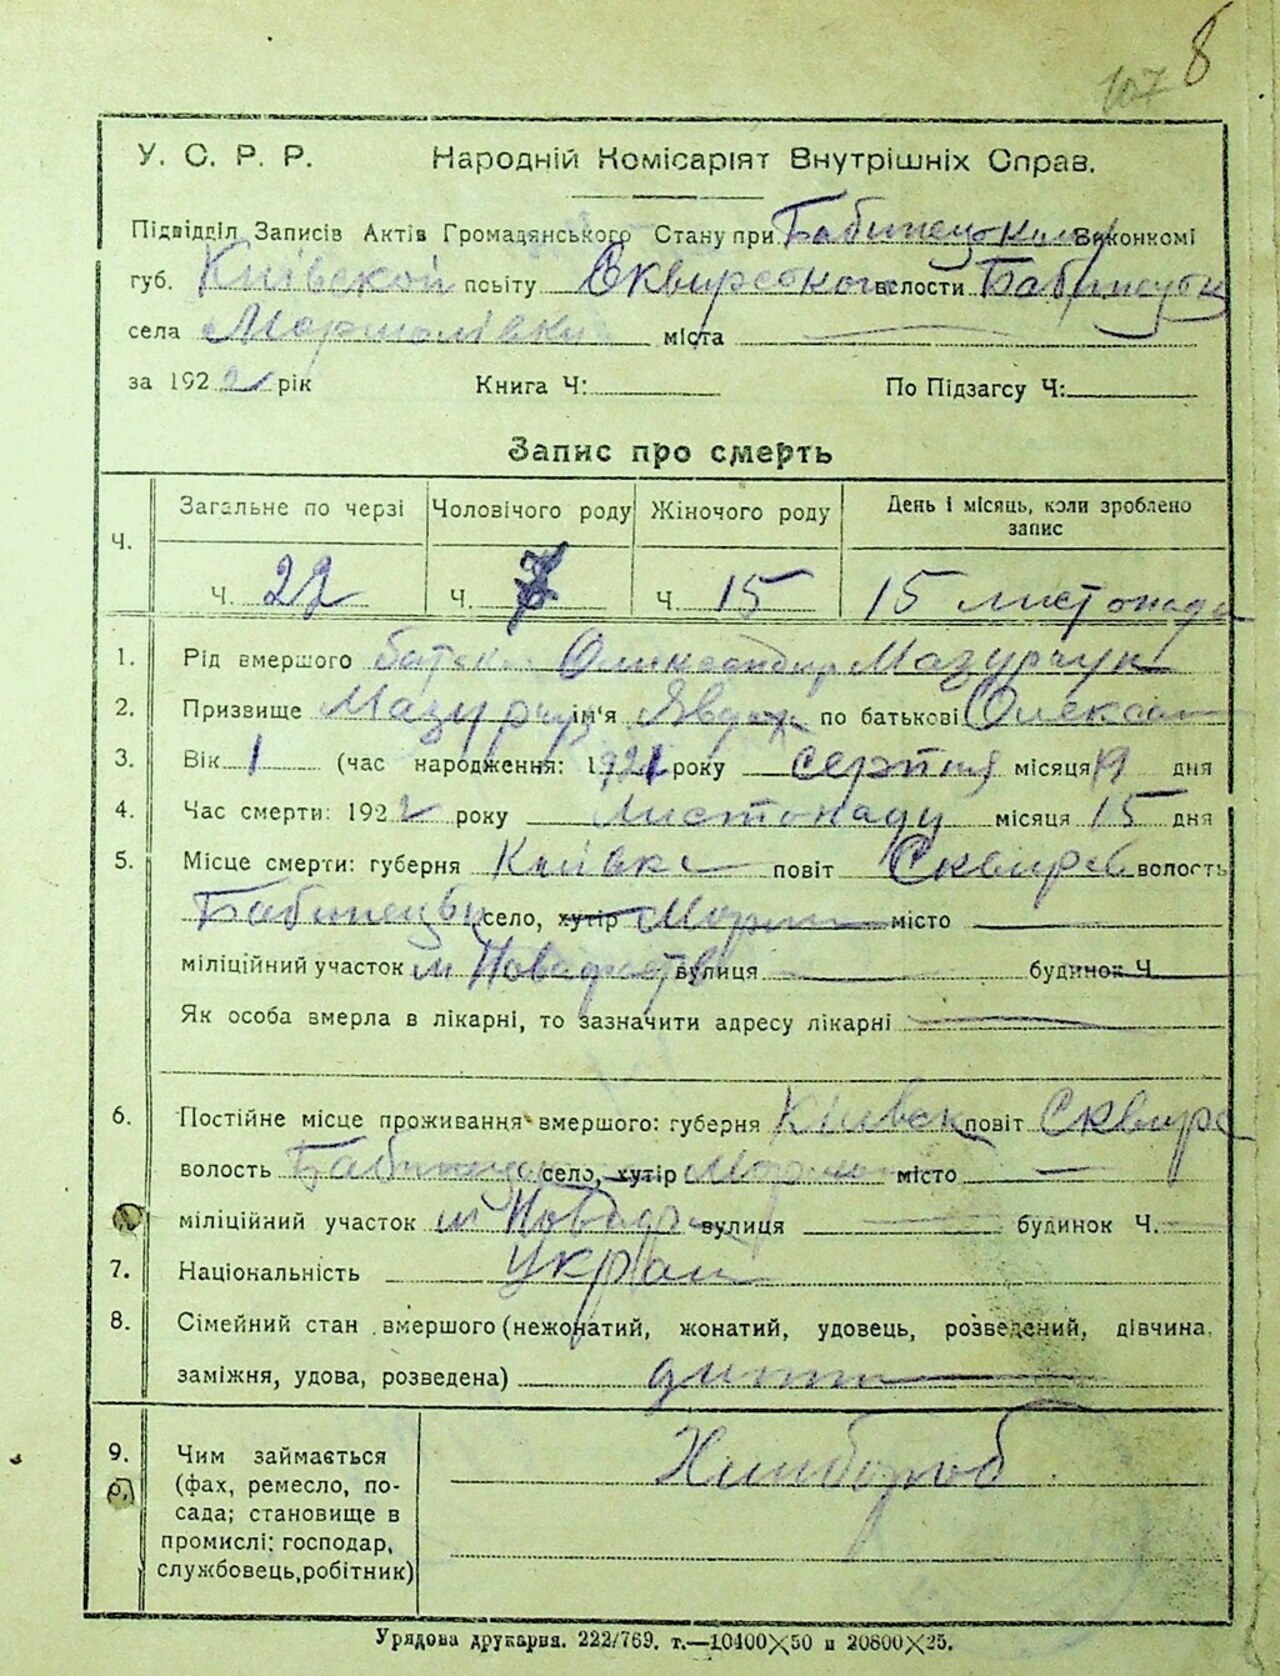 107 8
У. С. Р. Р. Народній Комісаріят Внутрішніх Справ.
Підвідділ Записів Актів Громадянського Стану при Виконкомі
губ. Київской повіту Сквирського волости
села міста —
за 1922 рік Книга Ч: По Підзагсу Ч:
Запис про смерть
Ч. Загальне по черзі Чоловічого роду Жіночого роду День і місяць, коли зроблено запис
Ч. 22 Ч. 7 Ч. 15 15 листопада
1. Рід вмершого Мазурчук
2. Призвище ім'я по батькові Олексан
3. Вік 1 (час народження: 1921 року серпня місяця 19 дня
4. Час смерти: 1922 року Листопаду місяця 15 дня
5. Місце смерти: губерня повіт Сквирс волость
село, хутір місто —
міліційний участок вулиця — будинок Ч. —
Як особа вмерла в лікарні, то зазначити адресу лікарні —
6. Постійне місце проживання вмершого: губерня Київск повіт Сквирс
волость село, хутір місто —
міліційний участок вулиця — будинок Ч. —
7. Національність Украї
8. Сімейний стан вмершого (нежонатий, жонатий, удовець, розведений, дівчина,
заміжня, удова, розведена) дитина
9. Чим займається
(фах, ремесло, по-
сада; становище в
промислі: господар,
службовець, робітник)
Хлібороб
Урядова друкарня. 222/769. т.—10400×50 и 20800×25.